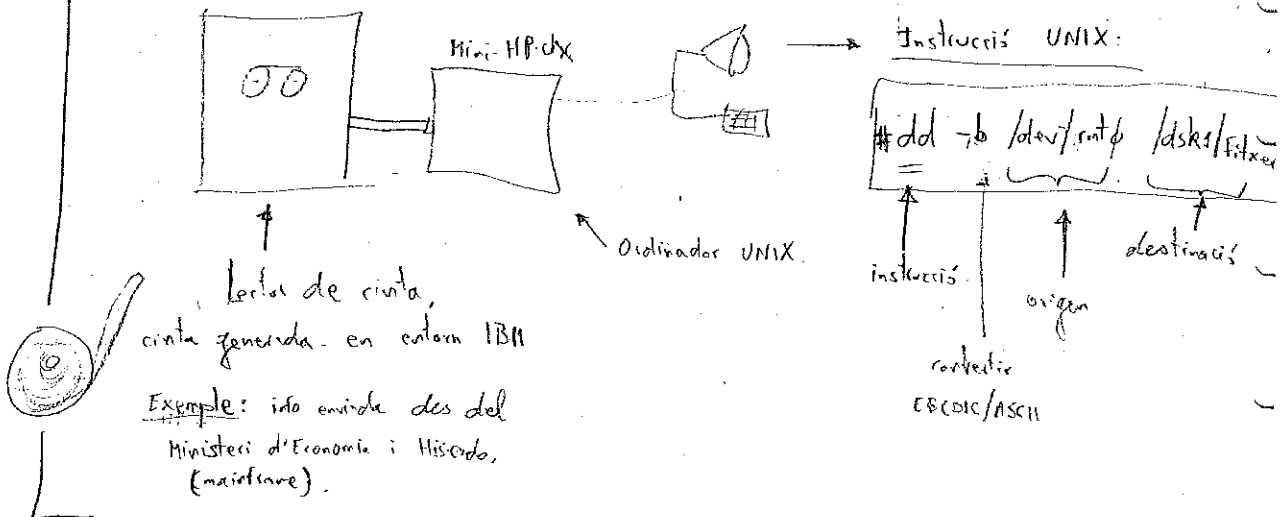 Mini-HP-UX
Instrucció UNIX:
#dd -b /dev/rmt0 /dsk1/fitxer
instrucció
origen
destinació
convertir
EBCDIC/ASCII
Ordinador UNIX.
Lector de cinta,
cinta generada en entorn IBM
Exemple: info enviada des del
Ministeri d'Economia i Hisenda,
(mainframe).